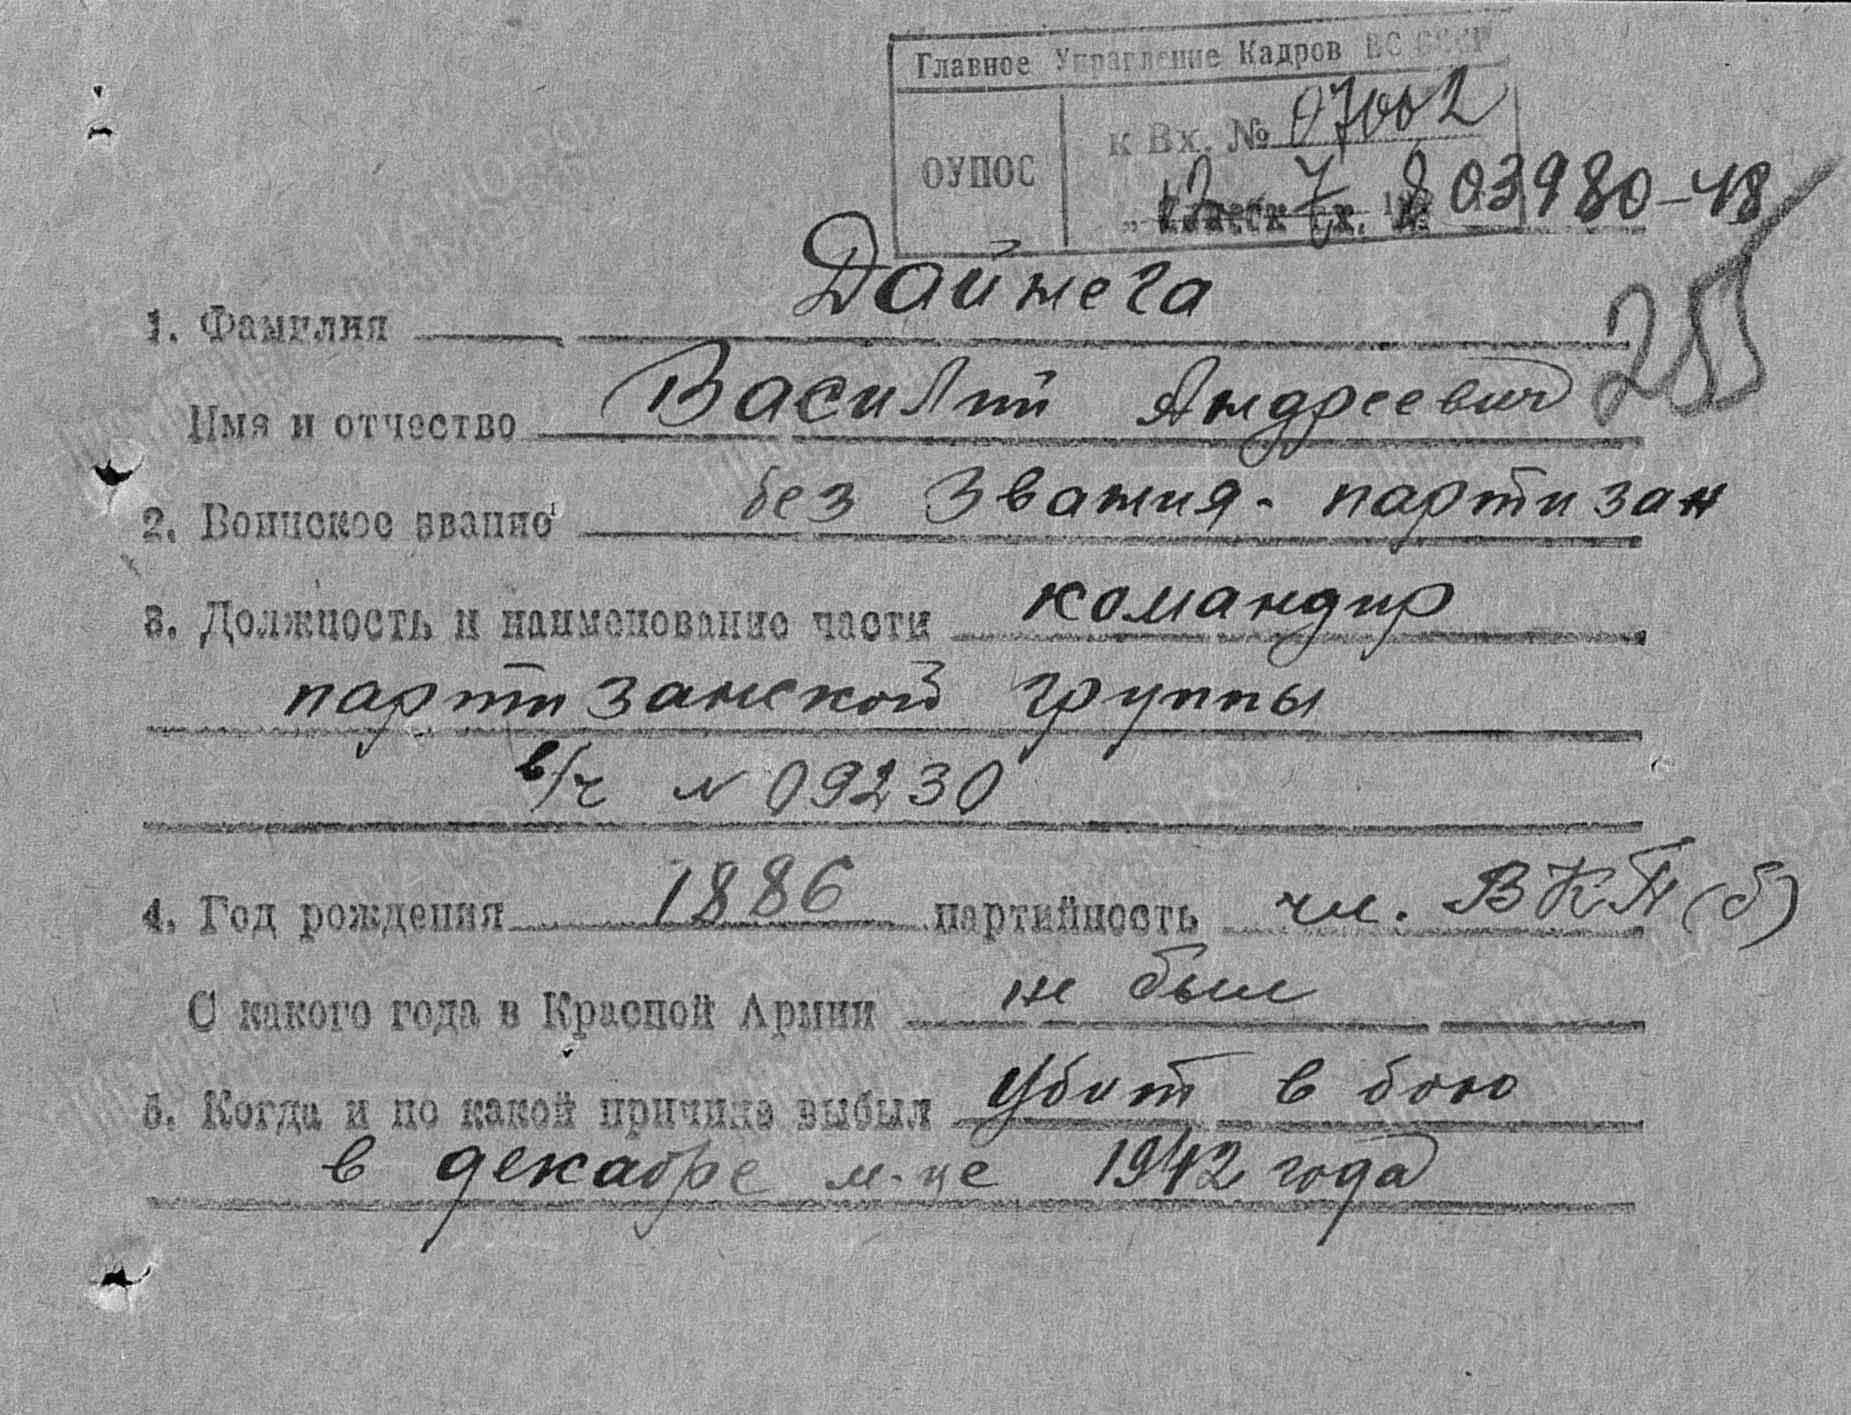 Главное Управление Кадров ВС СССР
ОУПОС
к Вх. № 07002
03980-48
255
1. Фамилия Дайнега
Имя и отчество Василий Андреевич
2. Воинское звание без звания - партизан
3. Должность и наименование части командир
партизанской группы
в/ч N 09230
4. Год рождения 1886 партийность чл. ВКП(б)
С какого года в Красной Армии не был
5. Когда и по какой причине выбыл Убит в бою
в декабре м-це 1942 года